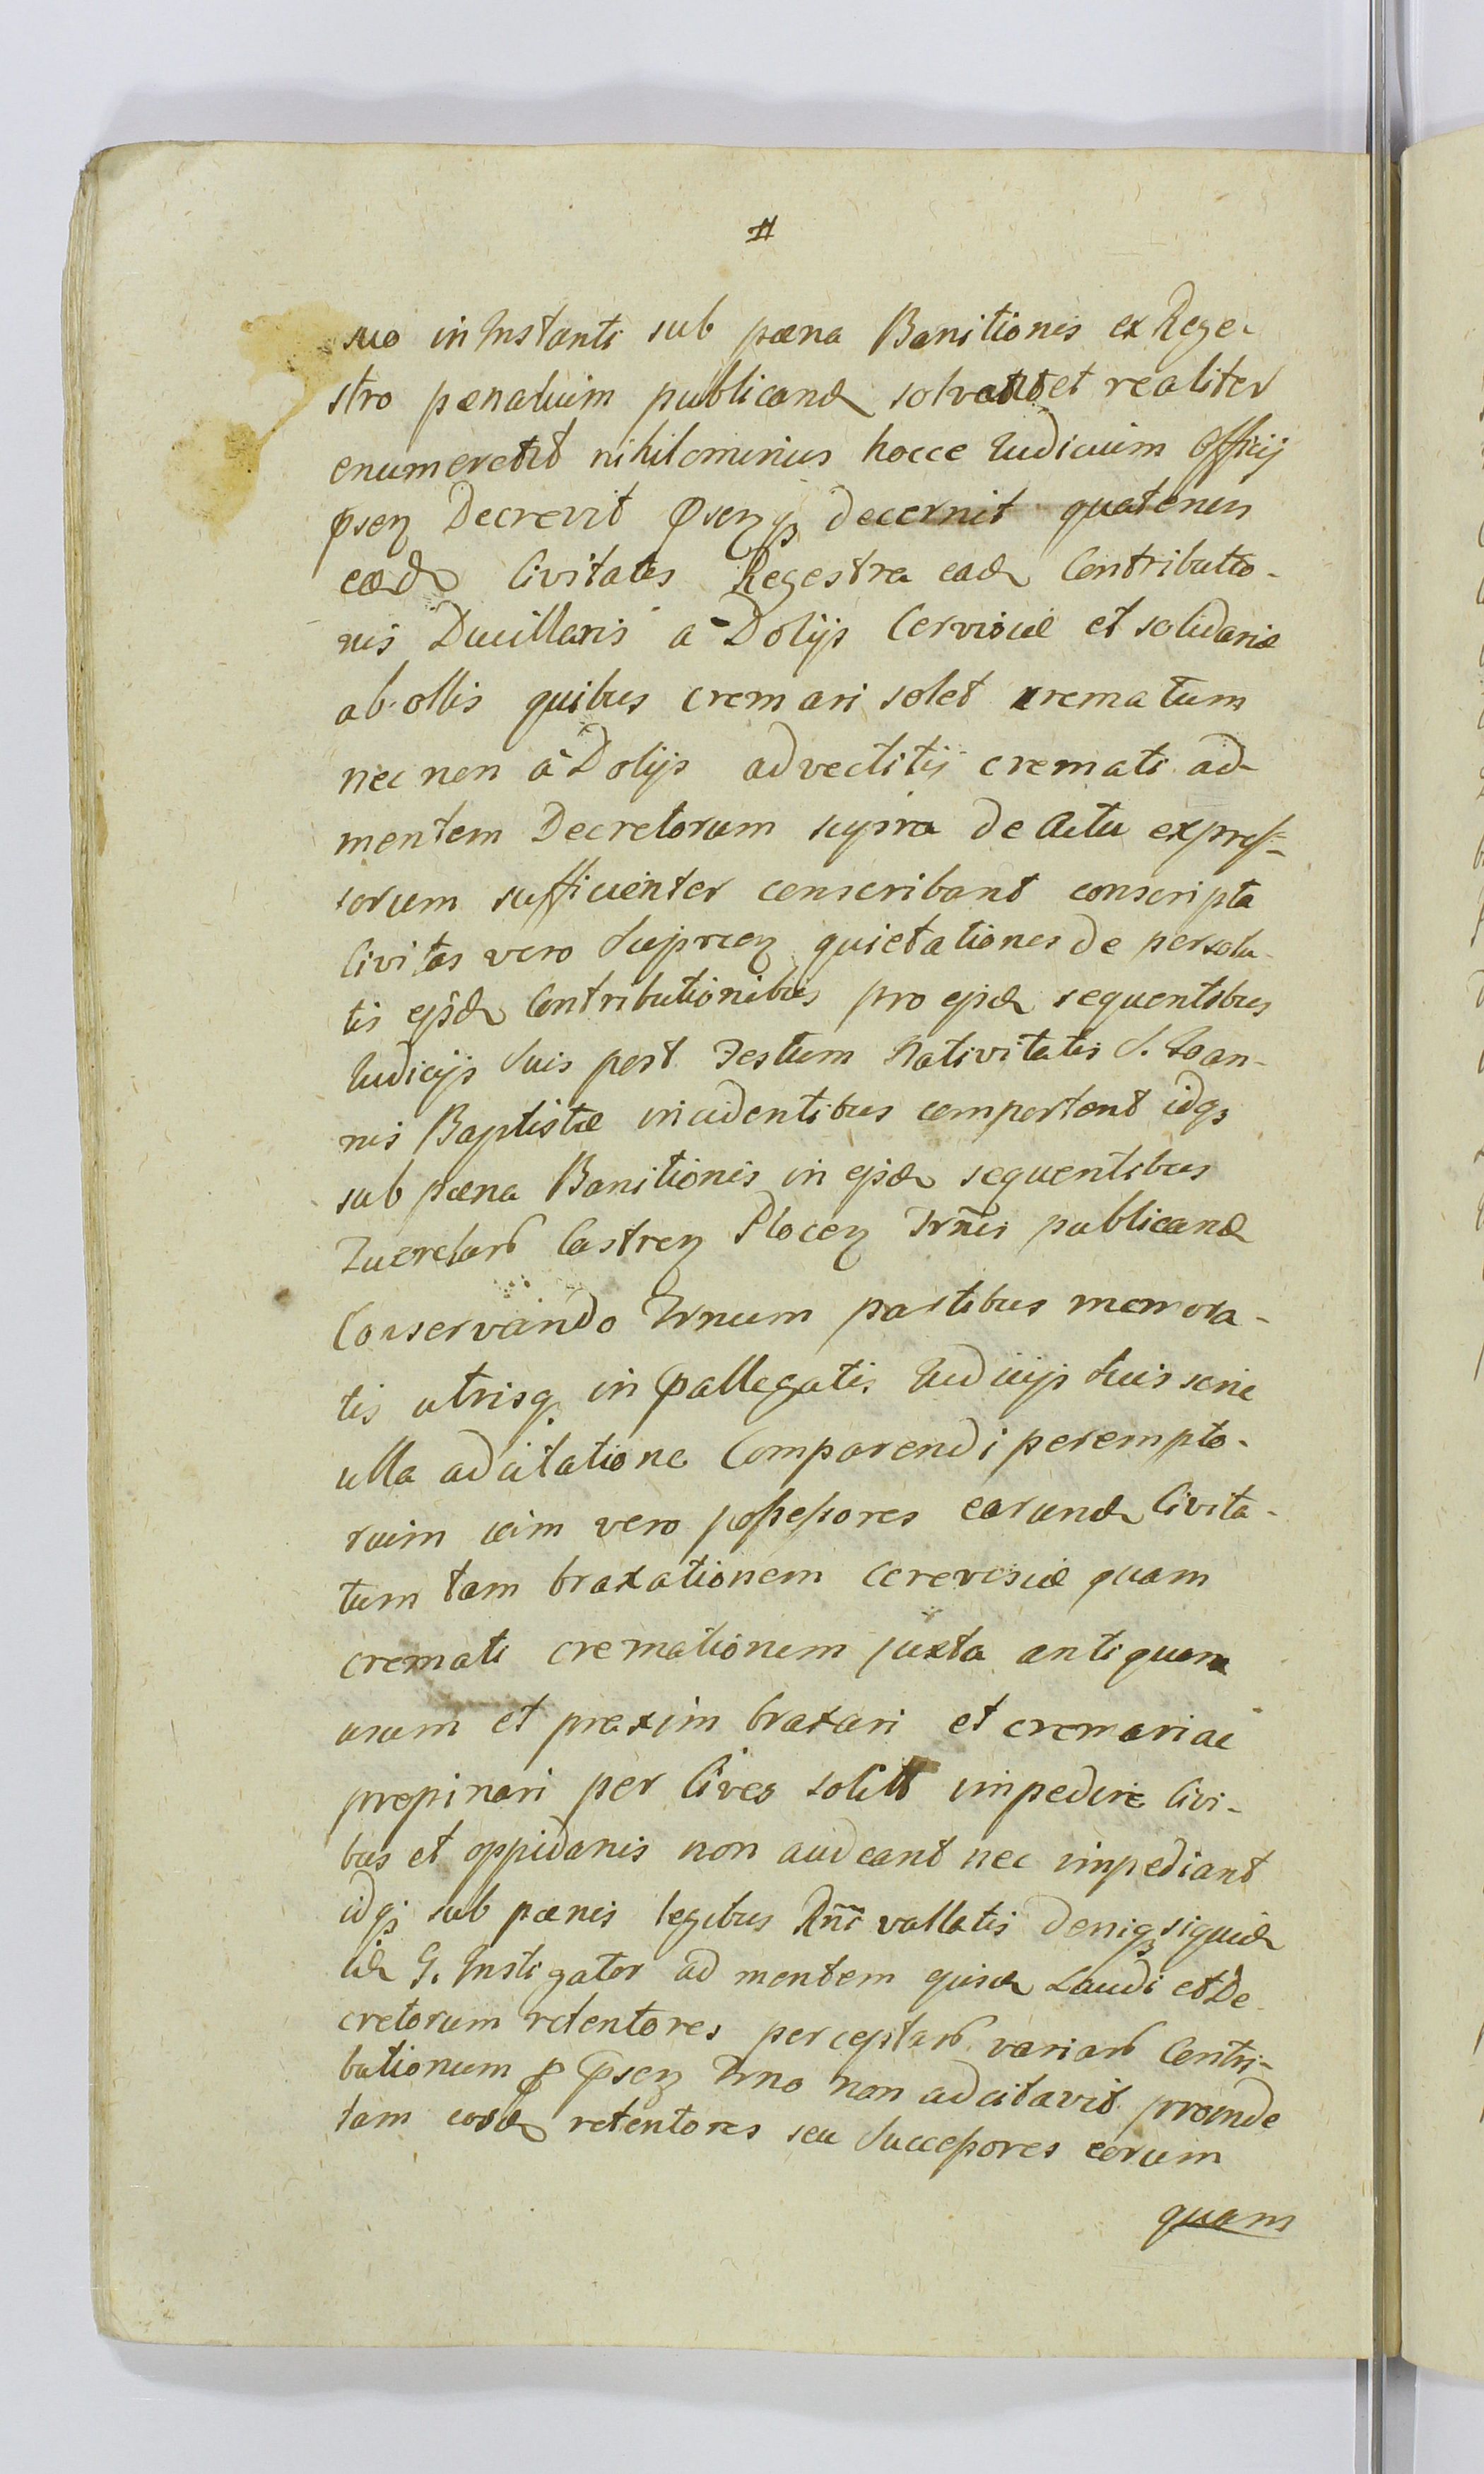 #
suo in Instanti sub pæna Banitionis ex Rege-
stro pænaluim publicand solvat et realiter
enumeret nihilominus hocce Iudicium Officij
Psen Decrevit Psenq decernit quatenus
eæd Civitates Regestra ead Contributio-
nis Ducillaris a Dolijs Cervisiæ et solidariæ
ab ollis quibus cremari solet crematum
nec non a Dolijs advectitij cremati ad
mentem Decretorum supra de Actu expres-
sorum sufficienter conscribant conscripta
Civitas vero Suprien quietationes de persolu-
tis ejsd Contributionibus pro ejsd sequentibus
Iudicijs Suis post Festum Nativitatis S. Ioan-
nis Baptistæ incidentibus comportent idq
sub pæna Banitionis in ejsd sequentibus
Querelarb Castren Plocen Trnis publicand
Conservando Trnum partibus memora-
tis utrisq in Pallegatis Iudicijs Suis sine
ulla adcitatione Comparendi perempto-
rium cum vero possessores earund Civita-
tum tam braxationem cerevisiæ quam
cremati cremationem juxta antiquum
usum et praxim braxari et cremari ac
propinari per Cives solitt impedire Civi-
bus et oppidanis non audeant nec impediant
idq sub pænis legibus Rñi vallatis deniq siquid
id G. Instigator ad mentem ejusd Laudi et De-
cretorum retentores perceptarb variarb Contri-
butionum P Psen Trno non adcitavit proinde
tam eosd retentores seu Successores eorum
quam